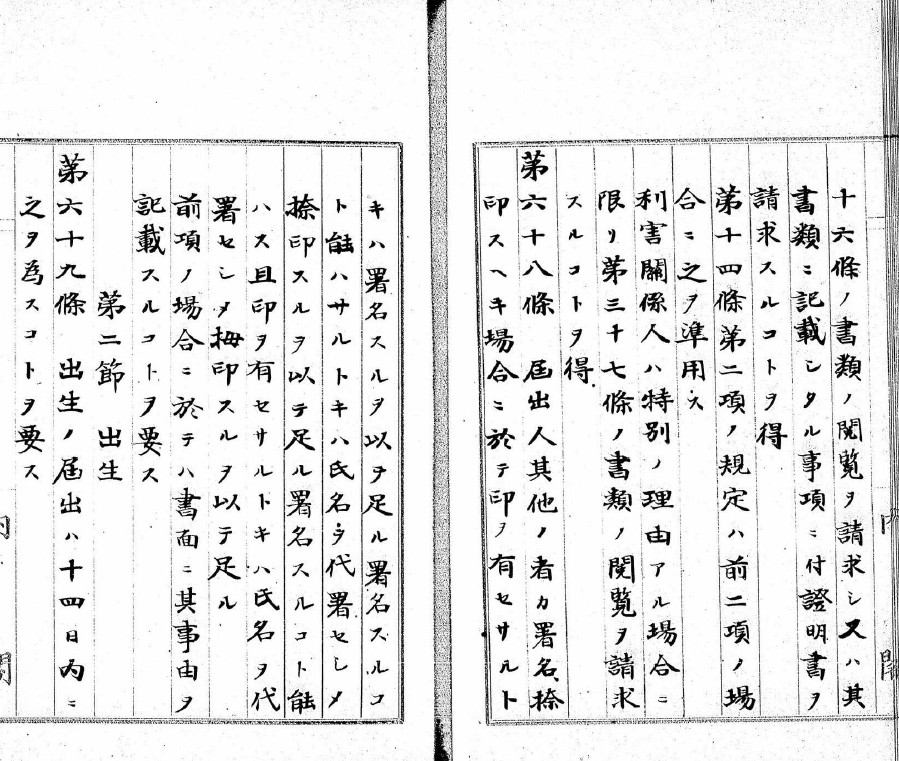 十六條ノ書類ノ閲覧ヲ請求シ又ハ其
書類ニ記載シタル事項ニ付證明書ヲ
請求スルコトヲ得
第十四條第二項ノ規定ハ前二項ノ場
合ニ之ヲ準用ス
利害關係人ハ特別ノ理由アル場合ニ
限リ第三十七條ノ書類ノ閲覧ヲ請求
スルコトヲ得
第六十八條 屆出人其他ノ者カ署名捺
印スヘキ場合ニ於テ印ヲ有セサルト
キハ署名スルヲ以テ足ル署名スルコ
ト能ハサルトキハ氏名ヲ代署セシメ
捺印スルヲ以テ足ル署名スルコト能
ハス且印ヲ有セサルトキハ氏名ヲ代
署セシメ拇印スルヲ以テ足ル
前項ノ場合ニ於テハ書面ニ其事由ヲ
記載スルコトヲ要ス
第二節 出生
第六十九條 出生ノ屆出ハ十四日内ニ
之ヲ為スコトヲ要ス
内
閣